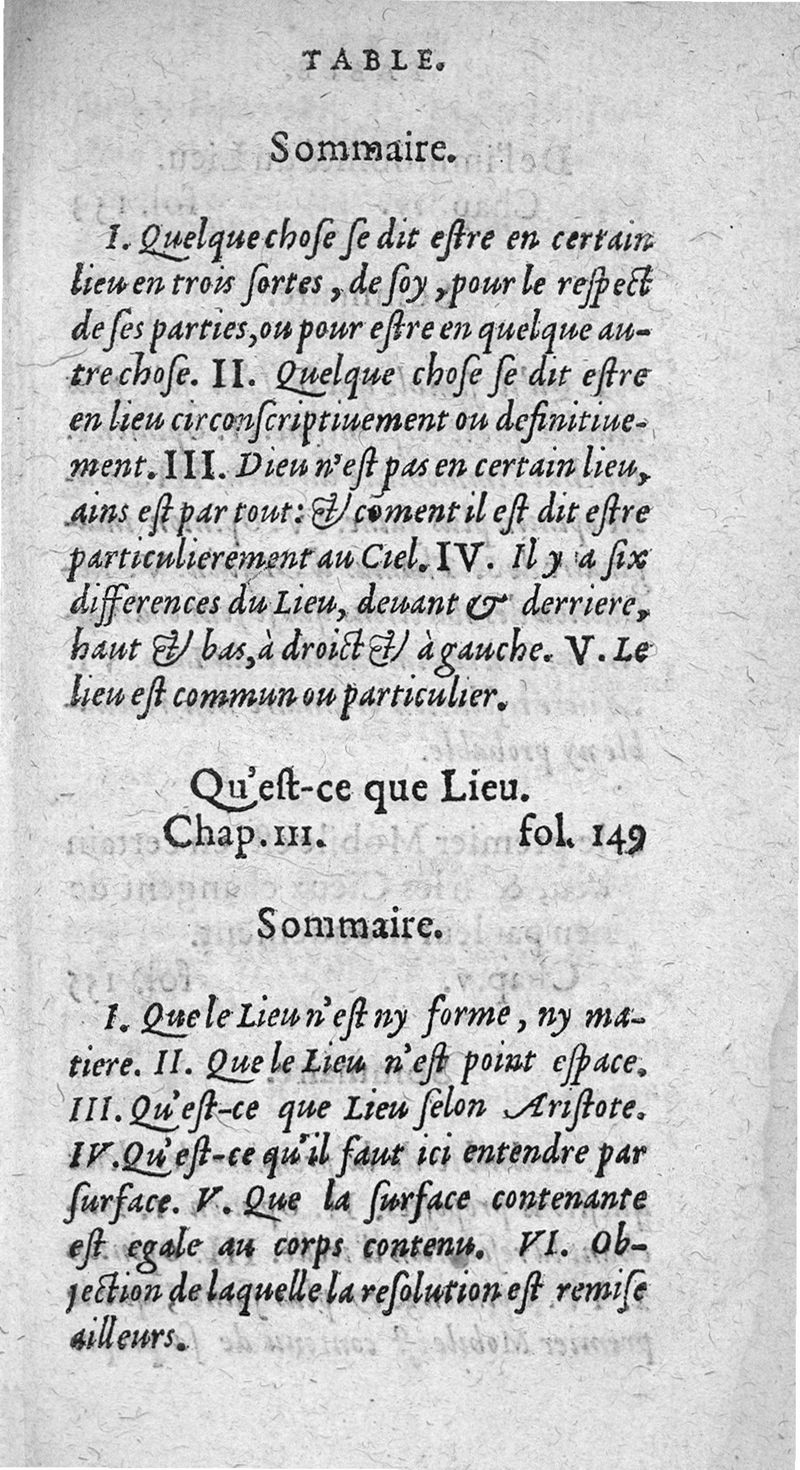 TABLE.
Sommaire.
I. Quelque choſe ſe dit eſtre en certain
lieu en trois ſortes, de ſoy, pour le reſpect
de ſes parties, ou pour eſtre en quelque au-
tre choſe. II. Quelque choſe ſe dit eſtre
en lieu circonſcriptiuement ou definitiue-
ment. III. Dieu n'eſt pas en certain lieu,
ains eſt par tout: & coment il eſt dit eſtre
particulierement au Ciel. IV. Il y a ſix
differences du Lieu, deuant & derriere,
haut & bas, à droict & à gauche. V. Le
lieu eſt commun ou particulier.
Qu'eſt-ce que Lieu.
Chap. III. fol. 149
Sommaire.
I. Que le Lieu n'eſt ny forme, ny ma-
tiere. II. Que le Lieu n'eſt point eſpace.
III. Qu'eſt-ce que Lieu ſelon Ariſtote.
IV. Qu'eſt-ce qu'il faut ici entendre par
ſurface. V. Que la ſurface contenante
eſt egale au corps contenu. VI. Ob-
jection de laquelle la reſolution eſt remiſe
ailleurs.